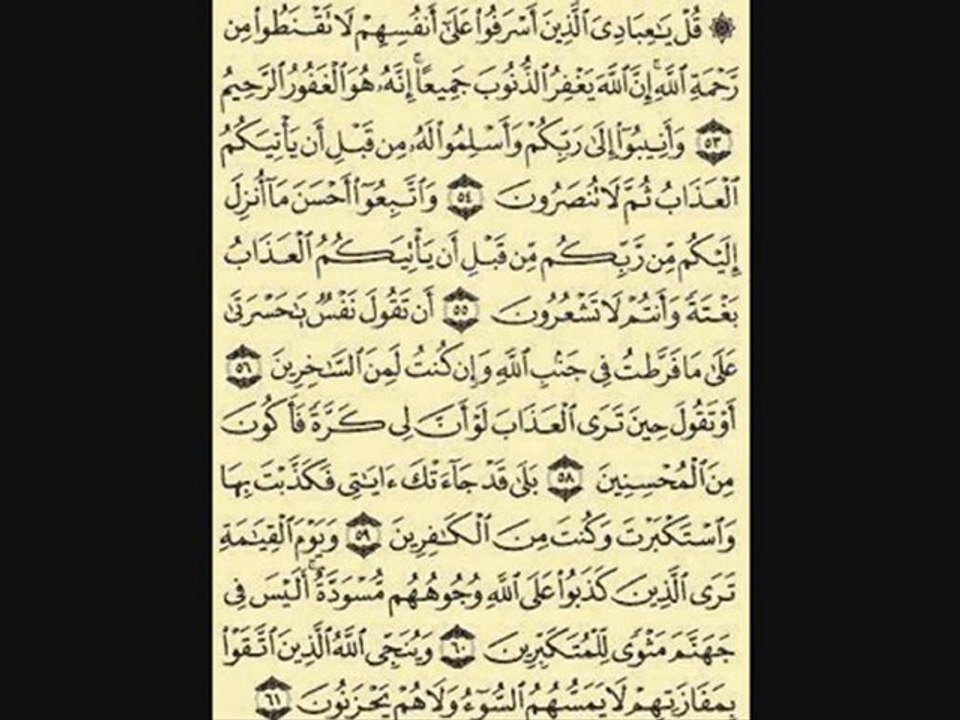 ۞ قُلْ يَٰعِبَادِىَ ٱلَّذِينَ أَسْرَفُوا۟ عَلَىٰٓ أَنفُسِهِمْ لَا تَقْنَطُوا۟ مِن
رَّحْمَةِ ٱللَّهِ ۚ إِنَّ ٱللَّهَ يَغْفِرُ ٱلذُّنُوبَ جَمِيعًا ۚ إِنَّهُۥ هُوَ ٱلْغَفُورُ ٱلرَّحِيمُ
٥٣ وَأَنِيبُوٓا۟ إِلَىٰ رَبِّكُمْ وَأَسْلِمُوا۟ لَهُۥ مِن قَبْلِ أَن يَأْتِيَكُمُ
ٱلْعَذَابُ ثُمَّ لَا تُنصَرُونَ ٥٤ وَٱتَّبِعُوٓا۟ أَحْسَنَ مَآ أُنزِلَ
إِلَيْكُم مِّن رَّبِّكُم مِّن قَبْلِ أَن يَأْتِيَكُمُ ٱلْعَذَابُ
بَغْتَةً وَأَنتُمْ لَا تَشْعُرُونَ ٥٥ أَن تَقُولَ نَفْسٌ يَٰحَسْرَتَىٰ
عَلَىٰ مَا فَرَّطتُ فِى جَنۢبِ ٱللَّهِ وَإِن كُنتُ لَمِنَ ٱلسَّٰخِرِينَ ٥٦
أَوْ تَقُولَ حِينَ تَرَى ٱلْعَذَابَ لَوْ أَنَّ لِى كَرَّةً فَأَكُونَ
مِنَ ٱلْمُحْسِنِينَ ٥٨ بَلَىٰ قَدْ جَآءَتْكَ ءَايَٰتِى فَكَذَّبْتَ بِهَا
وَٱسْتَكْبَرْتَ وَكُنتَ مِنَ ٱلْكَٰفِرِينَ ٥٩ وَيَوْمَ ٱلْقِيَٰمَةِ
تَرَى ٱلَّذِينَ كَذَبُوا۟ عَلَى ٱللَّهِ وُجُوهُهُم مُّسْوَدَّةٌ ۚ أَلَيْسَ فِى
جَهَنَّمَ مَثْوًى لِّلْمُتَكَبِّرِينَ ٦٠ وَيُنَجِّى ٱللَّهُ ٱلَّذِينَ ٱتَّقَوْا۟
بِمَفَازَتِهِمْ لَا يَمَسُّهُمُ ٱلسُّوٓءُ وَلَا هُمْ يَحْزَنُونَ ٦١